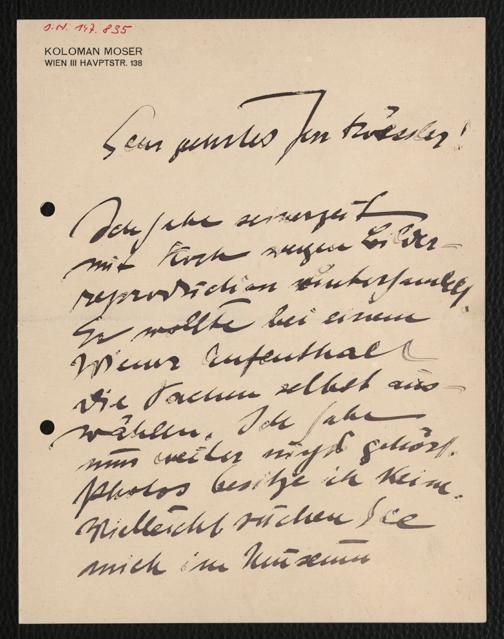 I.N. 147.835
KOLOMAN MOSER
WIEN III HAVPTSTR. 138
Sehr geehrter Herr Rössler!
Ich habe seinerzeit
mit Koch wegen Bilder-
reproduction unterhandelt.
Er wollte bei einem
Wiener Aufenthalt
die Sachen selbst aus-
wählen. Ich habe
nun weiter nichts gehört.
Photos besitze ich keine.
Vielleicht suchen Sie
mich im Museum